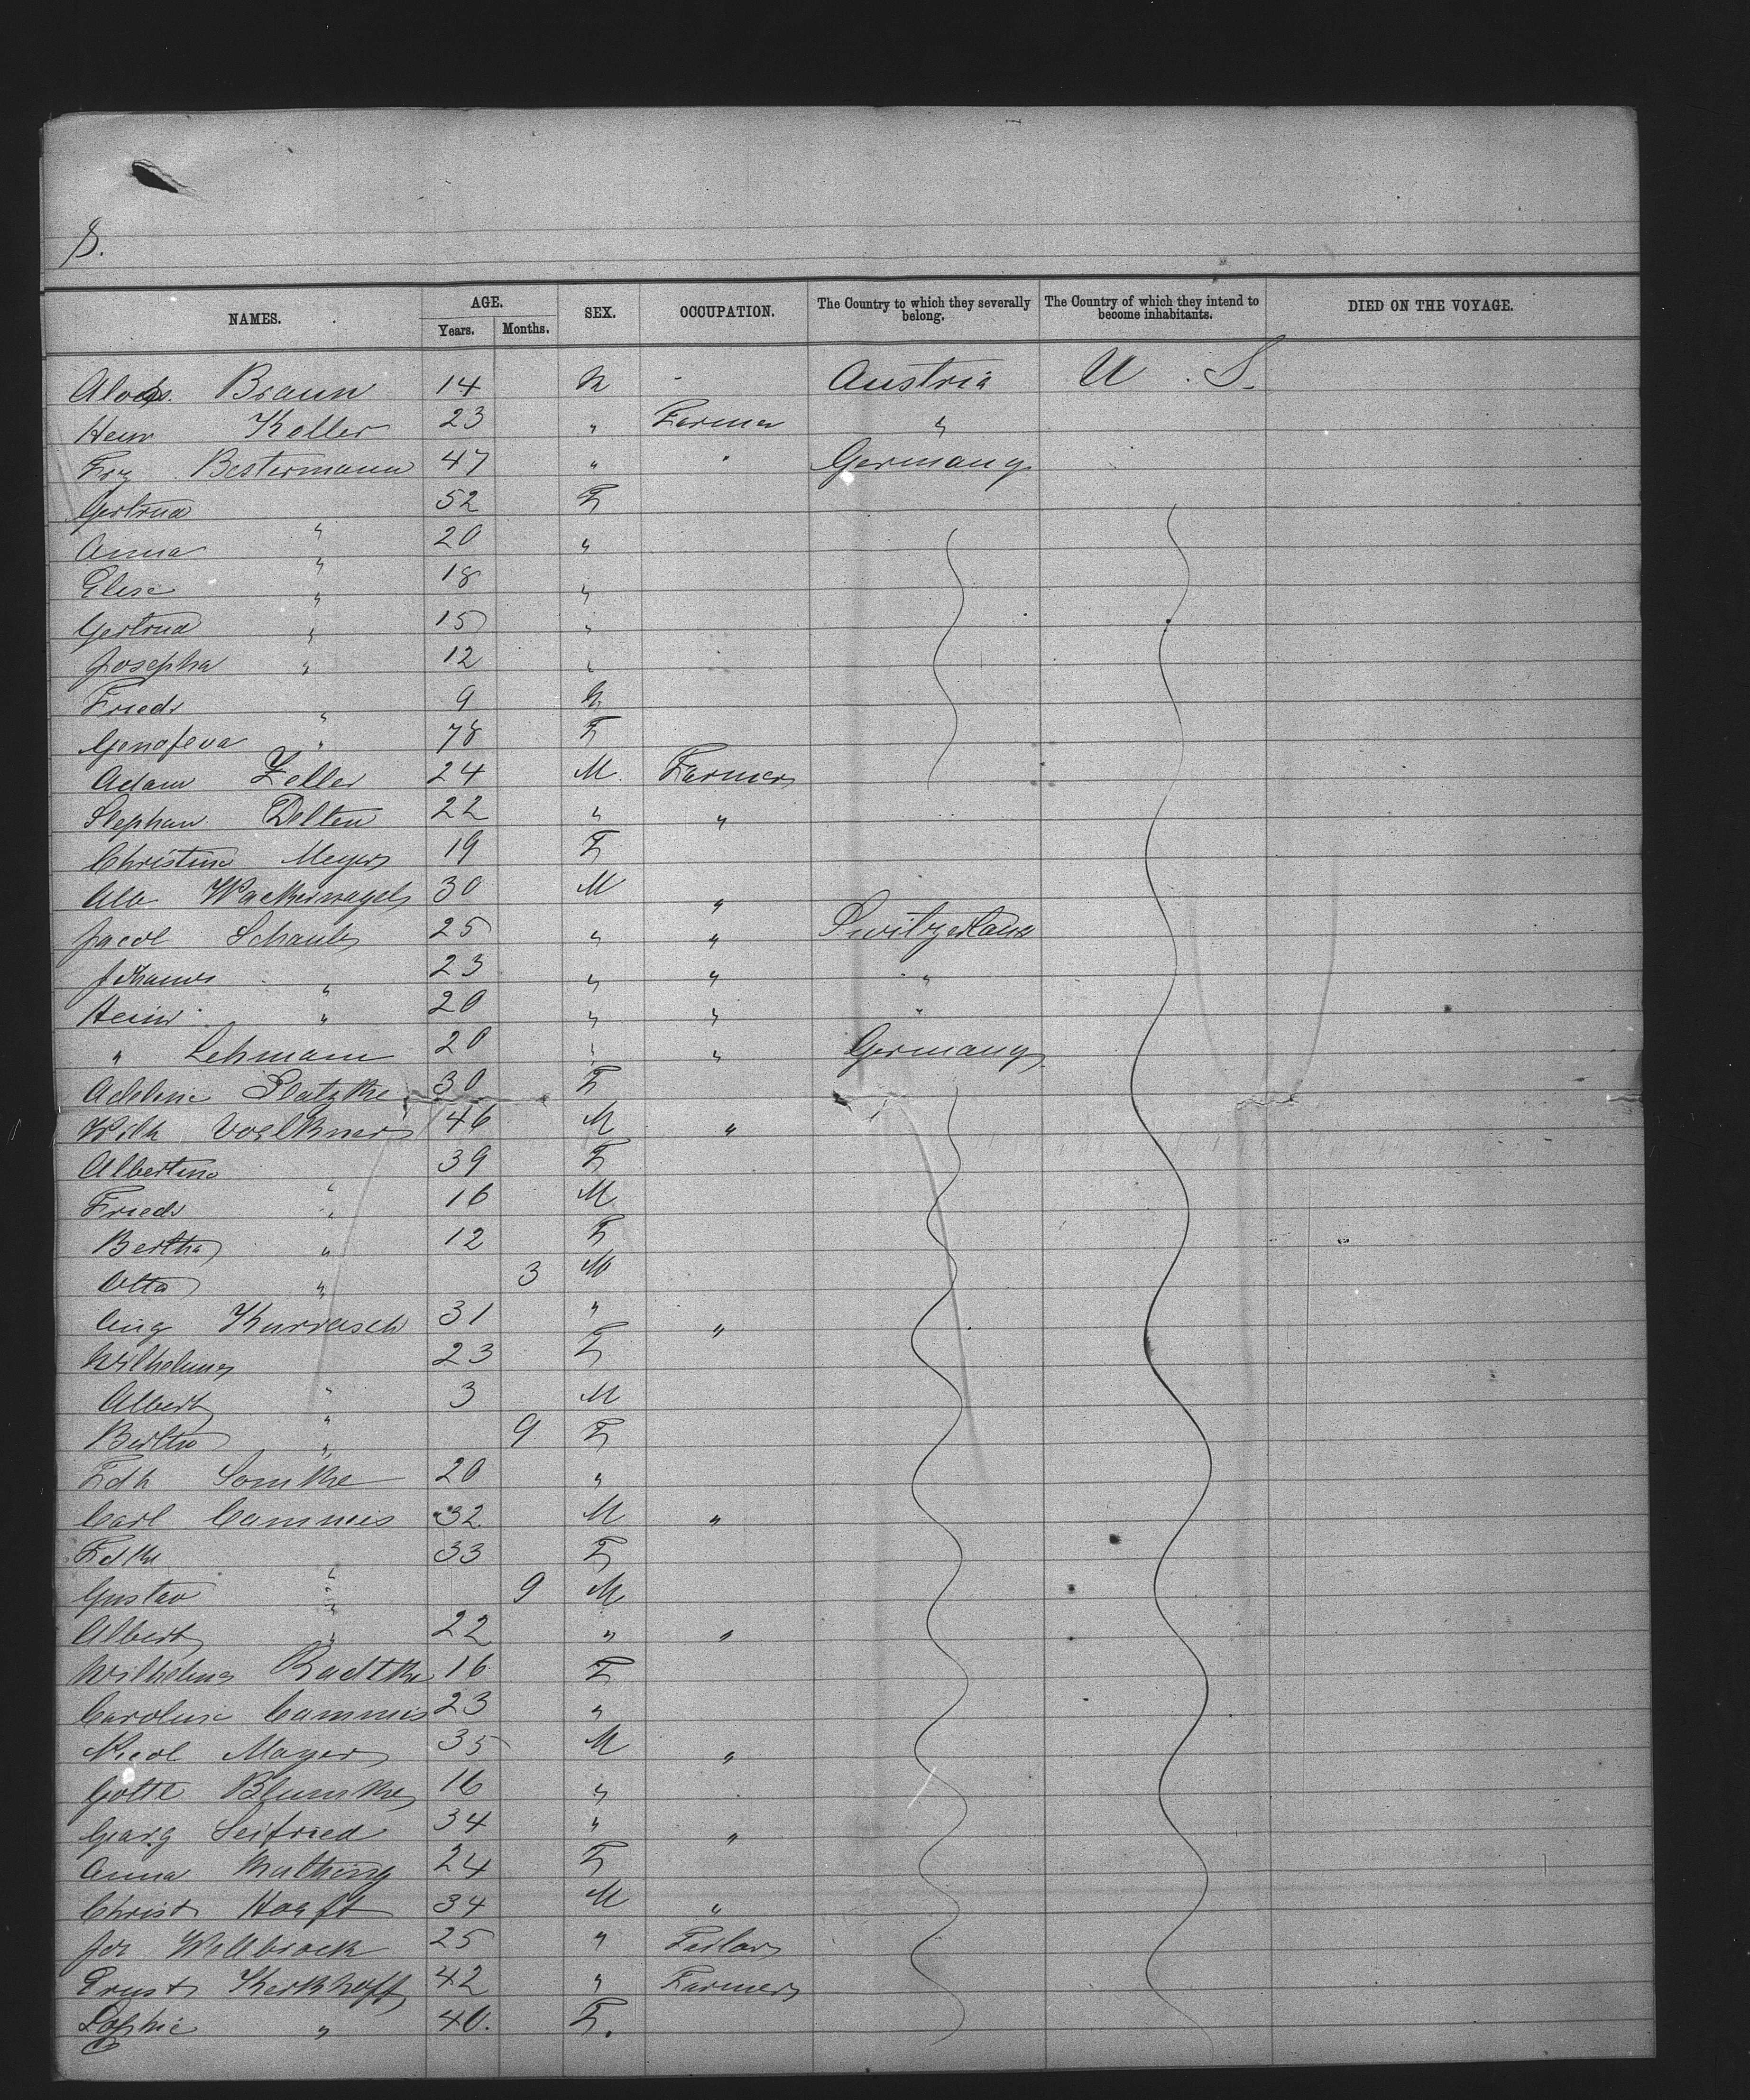 8.
NAMES. AGE. Years. Months. SEX. OCCUPATION. The Country to which they severally belong. The Country of which they intend to become inhabitants. DIED ON THE VOYAGE.
Alois. Braun 14 M - Austria U. S.
Heinr Keller 23 " Farmer "
Frz Bestermann 47 " " Germany
Gertrud " 52 F
Anna " 20 "
Elise " 18 "
Gertrud " 15 "
Josepha " 12 "
Friedr " 9 M
Genofeva " 78 F
Adam Zeller 24 M Farmer
Stephan Delten 22 " "
Christine Meyer 19 F
Alb Wackernagel 30 M "
Jacob Schaub 25 " " Switzerland
Johannes " 23 " " "
Heinr " 20 " " "
" Lehmann 20 " " Germany
Adeline Platzke 30 F
Wilh Voelkner 46 M "
Albertine " 39 F
Friedr " 16 M
Bertha " 12 F
Otto " 3 M
Aug Kurrasch 31 " "
Wilhelmine " 23 F
Albert " 3 M
Bertha " 9 F
Fdke Somke 20 "
Carl Cammies 32 M "
Fdke " 33 F
Gustav " 9 M
Albert " 22 " "
Wilhelmine Radtke 16 F
Caroline Cammies 23 "
Nicol Mayer 35 M "
Gottl Blumke 16 "
Georg Seifried 34 " "
Anna 24 F
Christ Haeft 34 M "
Joh Wellbrock 25 " Tailor
Ernst Kerkhoff 42 " Farmer
Sophie " 40. F.